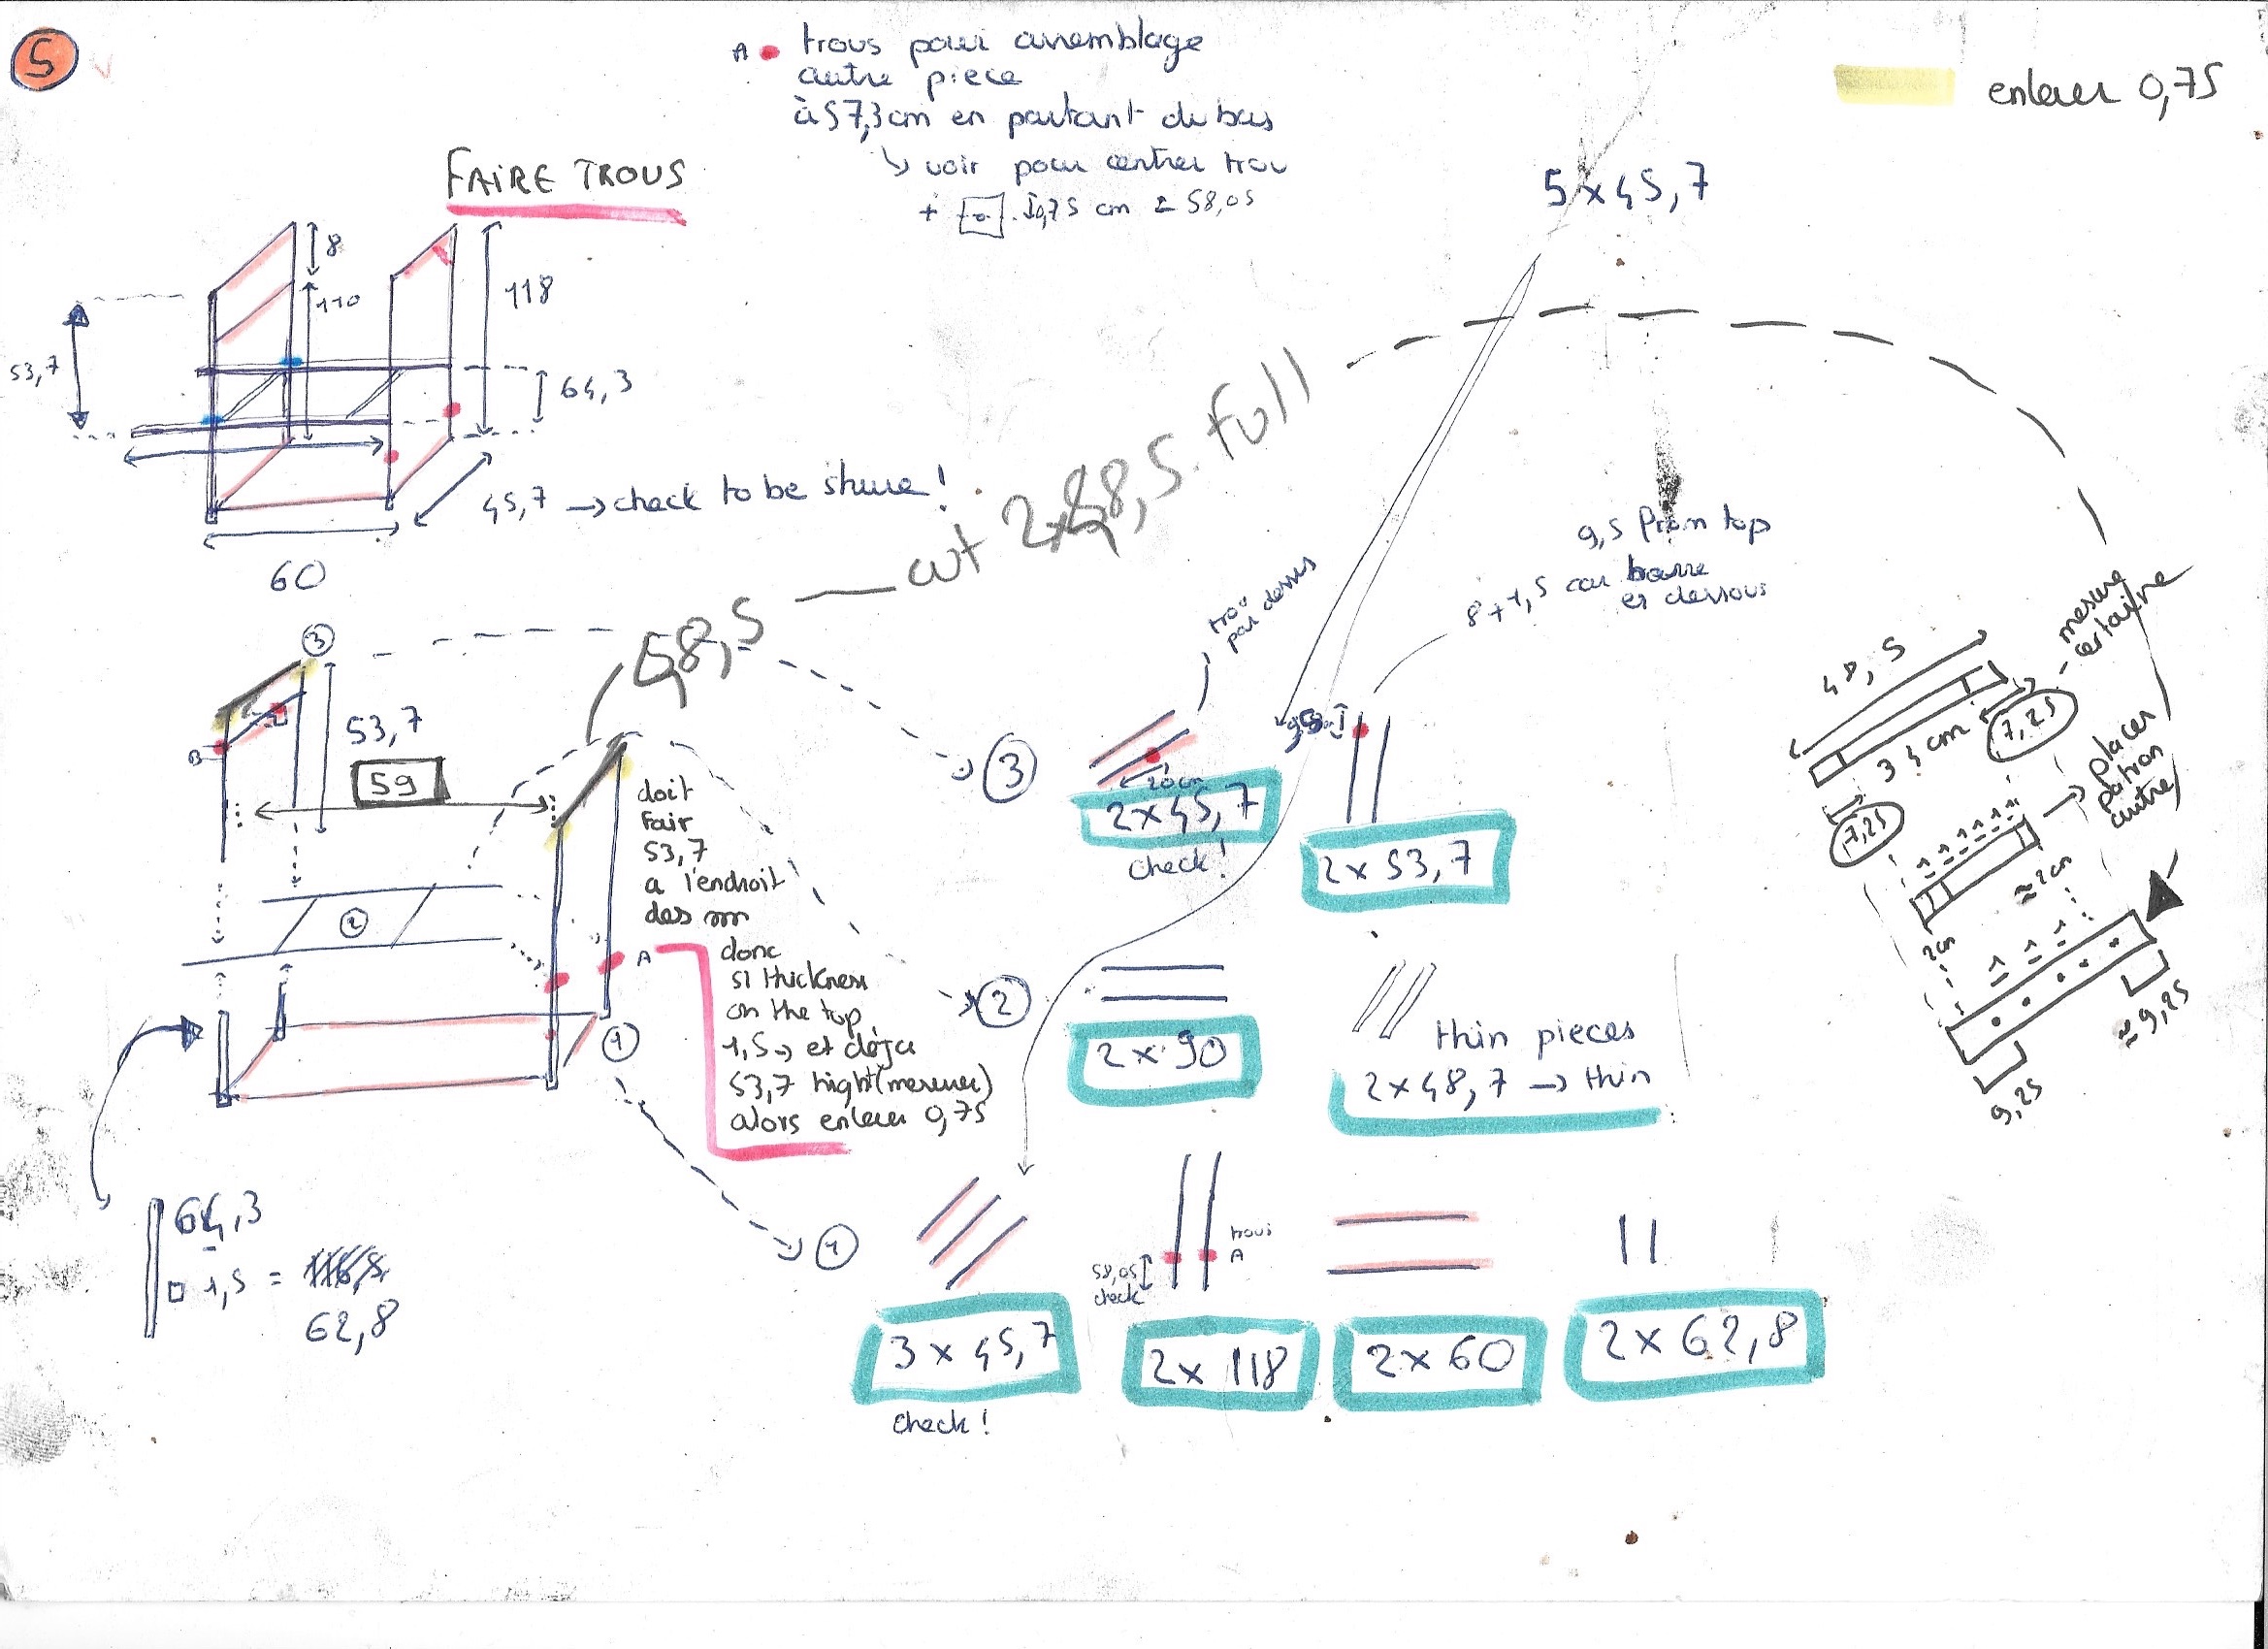 5
A • trous pour assemblage
autre piece
à 57,3 cm en partant du bas
↳ voir pour centrer trou
+ 0,75 cm = 58,05
enlever 0,75
FAIRE TROUS
5 x 45,7
8
110
118
53,7
64,3
45,7 → check to be shure !
60
48,5 — cut 2x48,5 full
9,5 from top
8 + 1,5 car barre
es dessous
trou
par dessus
3
53,7
59
B
doit
fair
53,7
a l'endroit
des
donc
si thickness
on the top
1,5 → et déja
53,7 hight (mesurer)
alors enlever 0,75
2
A
1
64,3
1,5 =
62,8
3
20 cm
2 x 45,7
check !
9,5
2 x 53,7
2
2 x 90
thin pieces
2 x 48,7 → thin
1
3 x 45,7
check !
58,05
check
trous
A
2 x 118
2 x 60
2 x 62,8
48,5
mesure
certaine
34 cm
7,25
7,25
placer
patron
autre
9,25
≈ 9,25